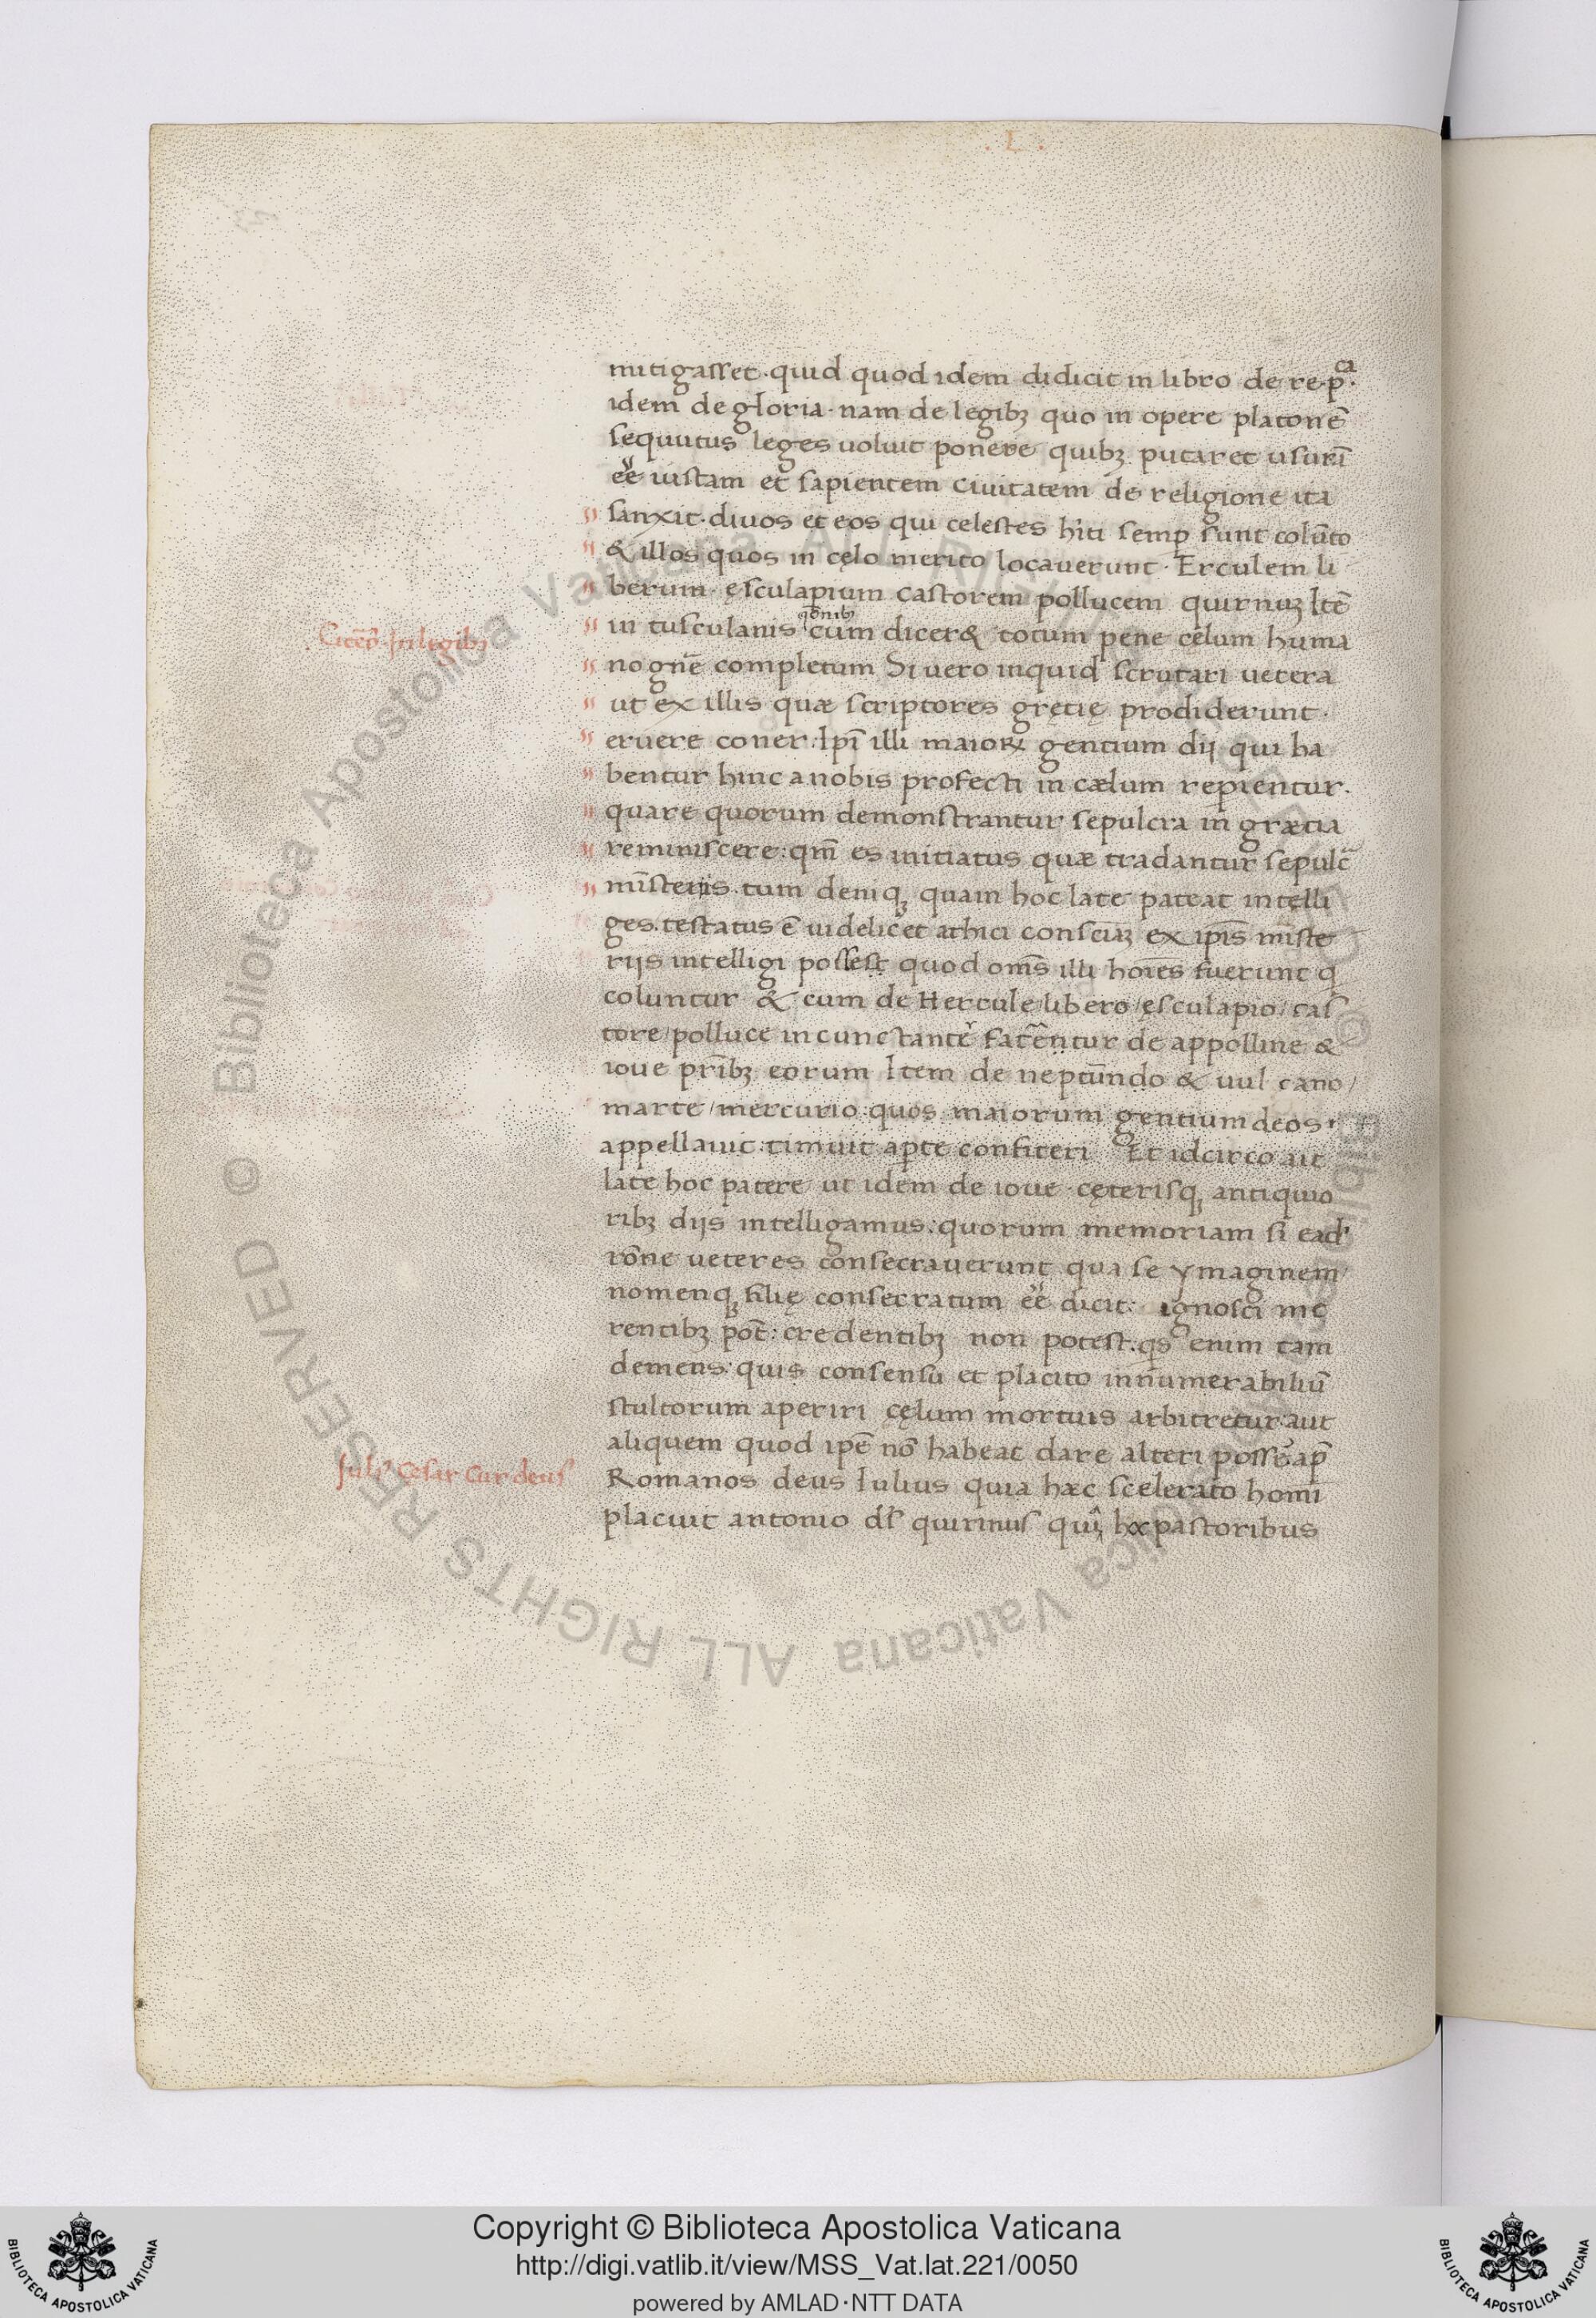 . L .
mitigasset · quid quod idem didicit in libro de re·p̄ca·
idem de gloria · nam de legibꝫ quo in opere platonē
sequutus leges uoluit ponere quibꝫ putaret usurā
eē iustam et sapientem ciuitatem de religione ita
sanxit · diuos et eos qui celestes hi̅ti semꝑ sunt colūto
& illos quos in cęlo merito locauerunt · Erculem li
berum · ęsculapium castorem pollucem quirinuꝫ Itē
in tusculanis q̄onibꝫ cum dicer& totum pene cęlum huma
no gn̄e completum Si uero inquid scrutari uetera
ut ex illis quæ scriptores gręcię prodiderunt ·
eruere coner : Ip̄i illi maioꝝ gentium dij qui ha
bentur hinc a nobis profecti in cælum reꝑientur ·
quare quorum demonstrantur sepulcra in græcia
reminiscere : qm̄ es initiatus quæ tradantur sepulc̄
misterijs · tum deniqꝫ quam hoc late pateat intelli
ges · testatus ē uidelicet athici consciaꝫ ex ip̄is miste
rijs intelligi possest quod om̄s illi hoīes fuerunt q̄
coluntur & cum de Hercule / libero / ęsculapio / cas
tore / polluce incunctantē fatēntur de appolline &
ioue prībꝫ eorum Item de neptūndo & uulcano /
marte / mercurio : quos maiorum gentium deos
appellauit : timuit aꝑte confiteri Et idcirco ait
late hoc patere ut idem de ioue · cęterisqꝫ antiquio
ribꝫ dijs intelligamus : quorum memoriam si ead'
rōne ueteres consecrauerunt qua se ymaginem /
nomenqꝫ filię consecratum eē dicit : ignosci me
rentibꝫ pōt : credentibꝫ non potest : qs enim tam
demens : quis consensu et placito innumerabiliū
stultorum aperiri cęlum mortuis arbitretur : aut
aliquem quod ip̄e nō habeat dare alteri posse ap̄
Romanos deus Iulius quia hæc scelerato homi
placuit antonio ds̄ quirinus quia hæ pastoribus
Citeō · In legibꝫ
Iuli' Cesar Cur deus
Copyright © Biblioteca Apostolica Vaticana
http://digi.vatlib.it/view/MSS_Vat.lat.221/0050
powered by AMLAD·NTT DATA
BIBLIOTECA APOSTOLICA VATICANA
BIBLIOTECA APOSTOLICA VATICANA
© Biblioteca Apostolica Vaticana ALL RIGHTS RESERVED © Biblioteca Apostolica Vaticana ALL RIGHTS RESERVED